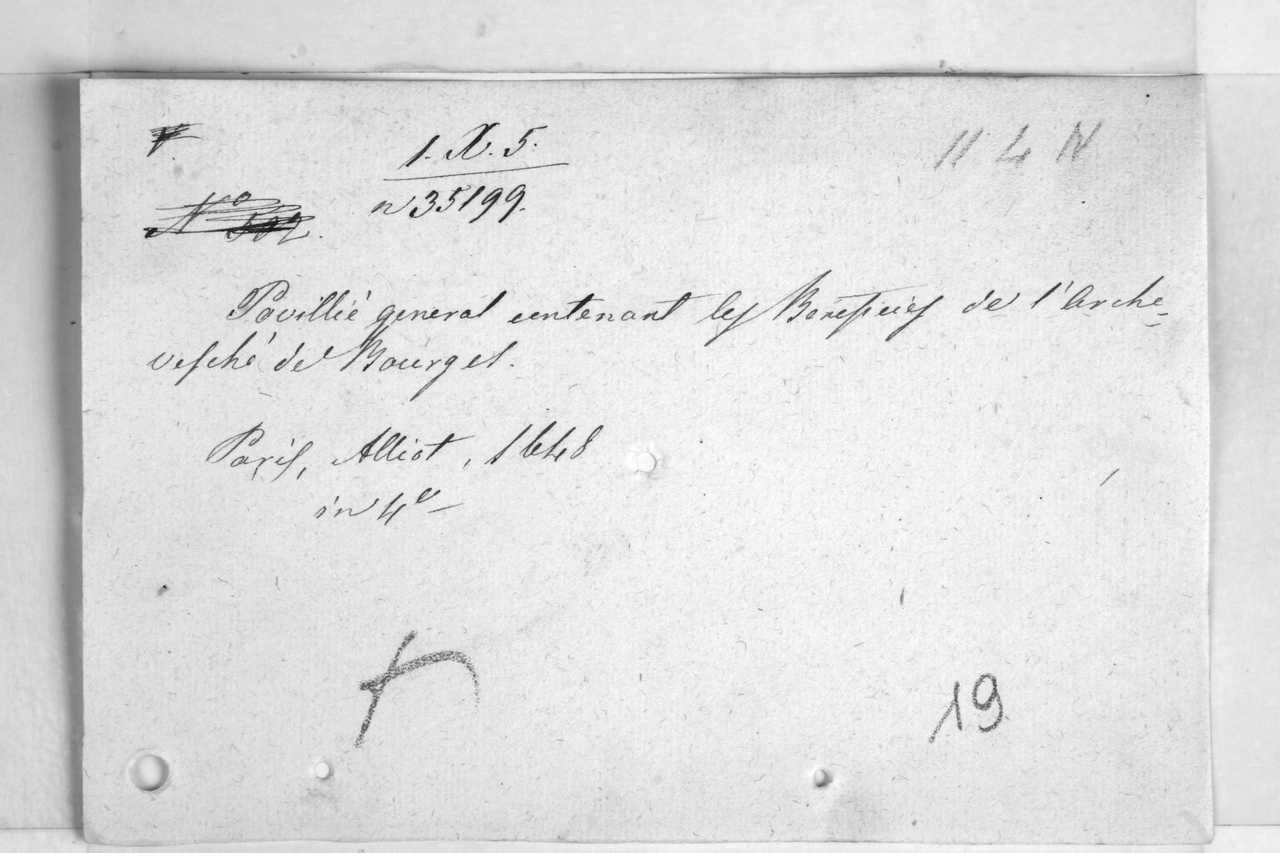 1. X. 5.
11 4 N
N° 502.
n 35199.
Povillié general contenant les Benefices de l'Arche-
vesché de Bourges.
Paris, Alliot, 1648
in 4°
19